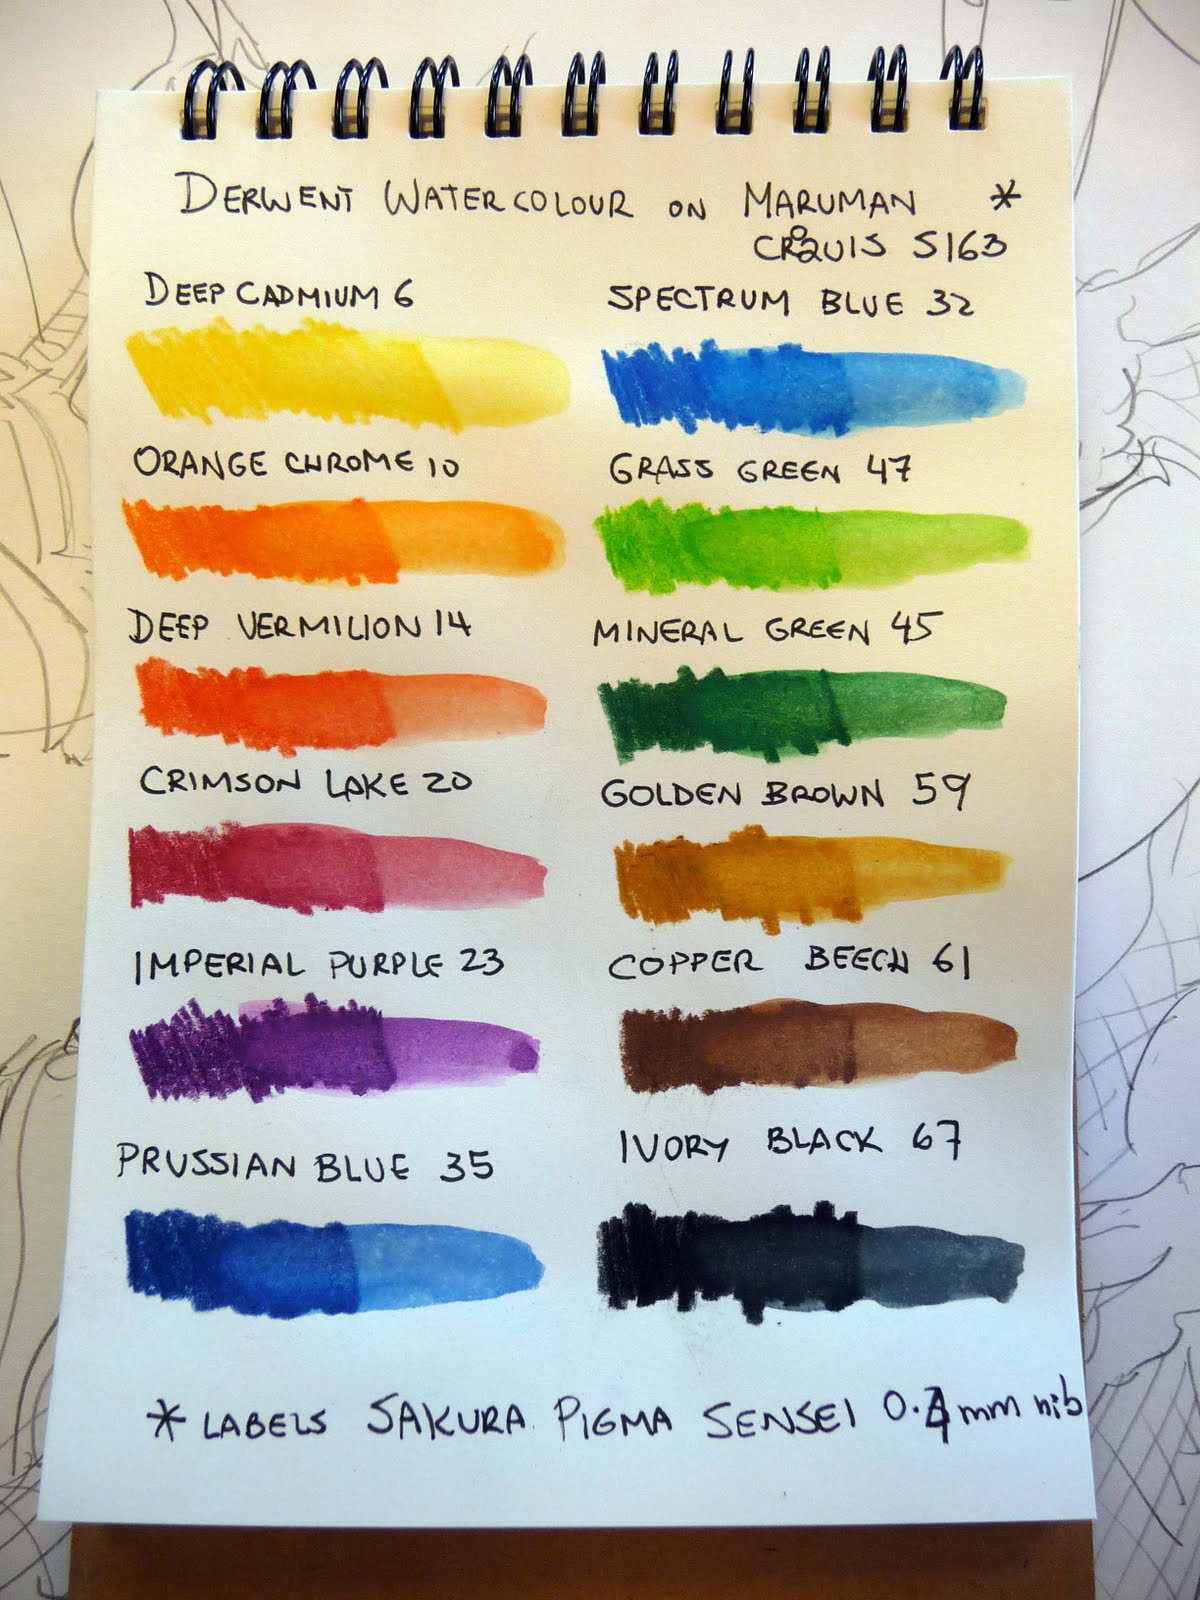 DERWENT WATERCOLOUR ON MARUMAN *
CROQUIS S163
DEEP CADMIUM 6
SPECTRUM BLUE 32
ORANGE CHROME 10
GRASS GREEN 47
DEEP VERMILION 14
MINERAL GREEN 45
CRIMSON LAKE 20
GOLDEN BROWN 59
IMPERIAL PURPLE 23
COPPER BEECH 61
PRUSSIAN BLUE 35
IVORY BLACK 67
* LABELS SAKURA PIGMA SENSEI 0.4mm nib